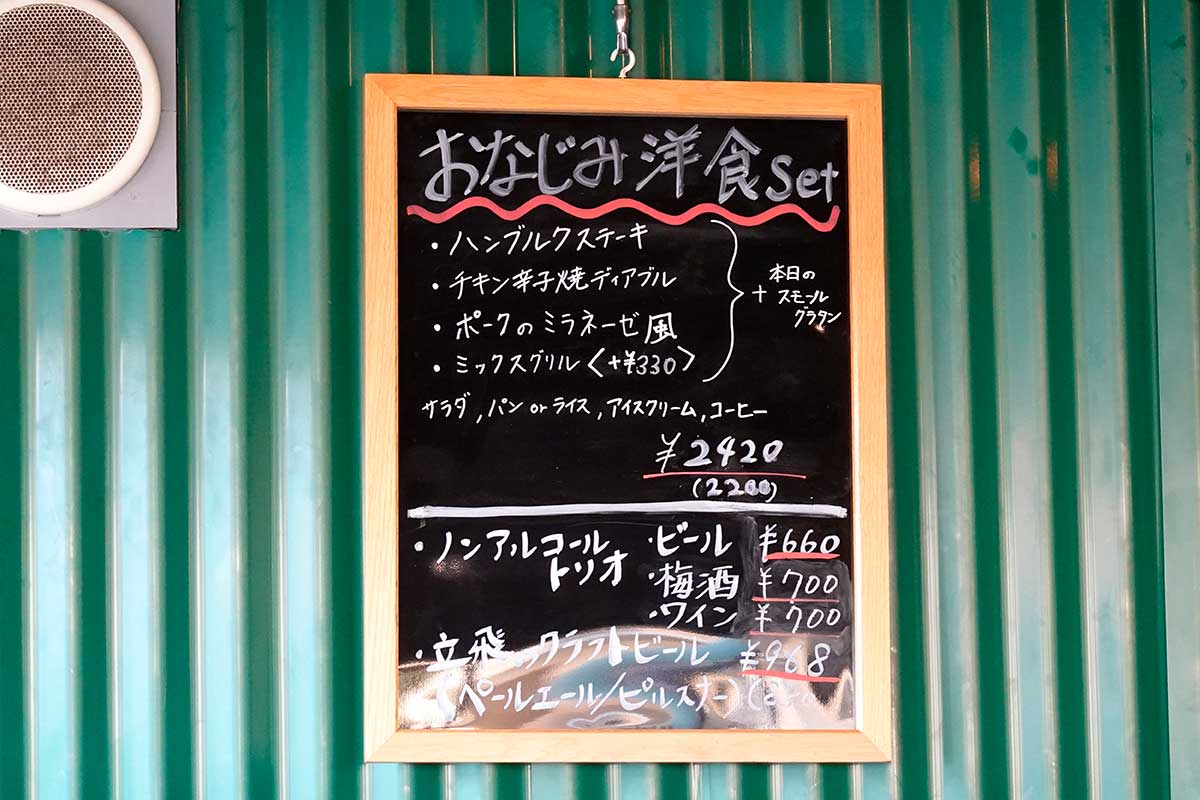 おなじみ洋食Set
・ハンブルクステーキ
・チキン辛子焼ディアブル
・ポークのミラネーゼ風
・ミックスグリル〈+¥330〉
+ 本日の
スモール
グラタン
サラダ,パンorライス,アイスクリーム,コーヒー
¥2420
(2200)
・ノンアルコール
トリオ
・ビール ¥660
・梅酒 ¥700
・ワイン ¥700
・立飛クラフトビール ¥968
(ペールエール/ピルスナー)